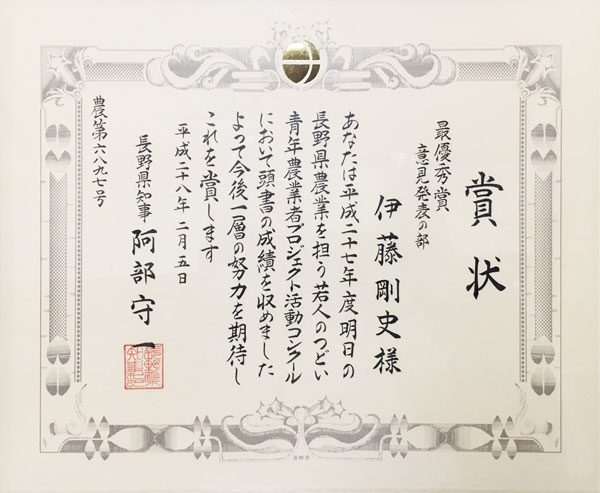 賞状
最優秀賞
意見発表の部
伊藤剛史様
あなたは平成二十七年度明日の
長野県農業を担う若人のつどい
青年農業者プロジェクト活動コンクール
において頭書の成績を収めました
よって今後一層の努力を期待し
これを賞します
平成二十八年二月五日
長野県知事 阿部守一
農第六八九七号